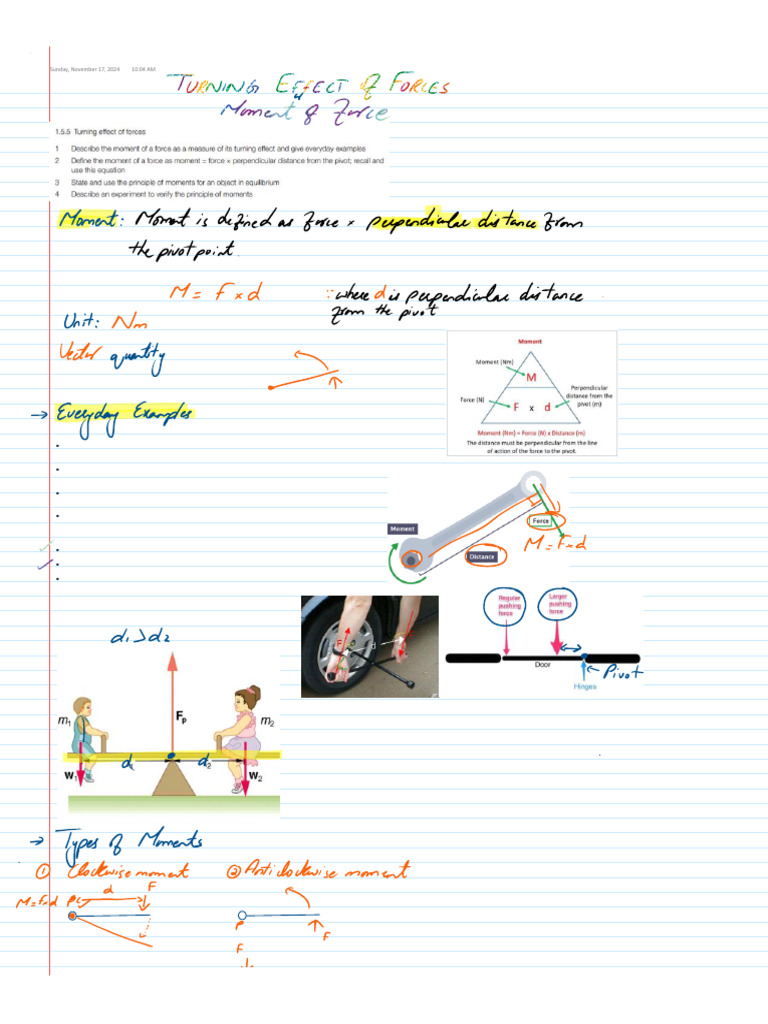 Sunday, November 17, 2024 10:04 AM
TURNING EFFECT of FORCES
Moment of Force
1.5.5 Turning effect of forces
1 Describe the moment of a force as a measure of its turning effect and give everyday examples
2 Define the moment of a force as moment = force × perpendicular distance from the pivot; recall and
use this equation
3 State and use the principle of moments for an object in equilibrium
4 Describe an experiment to verify the principle of moments
Moment: Moment is defined as Force × perpendicular distance from
the pivot point.
M = F × d ∵ where d is perpendicular distance
from the pivot
Unit: Nm
Vector quantity
Moment
Moment (Nm)
M
Force (N)
F x d
Perpendicular
distance from the
pivot (m)
Moment (Nm) = Force (N) x Distance (m)
The distance must be perpendicular from the line
of action of the force to the pivot.
→ Everyday Examples
Moment
Force
Distance
M = F × d
F
d
F
Regular
pushing
force
Larger
pushing
force
Door
Pivot
Hinges
d1 > d2
Fp
m1
m2
d1
d2
W1
W2
→ Types of Moments
① Clockwise moment ② Anticlockwise moment
d F
M = F×d P
P
F
F